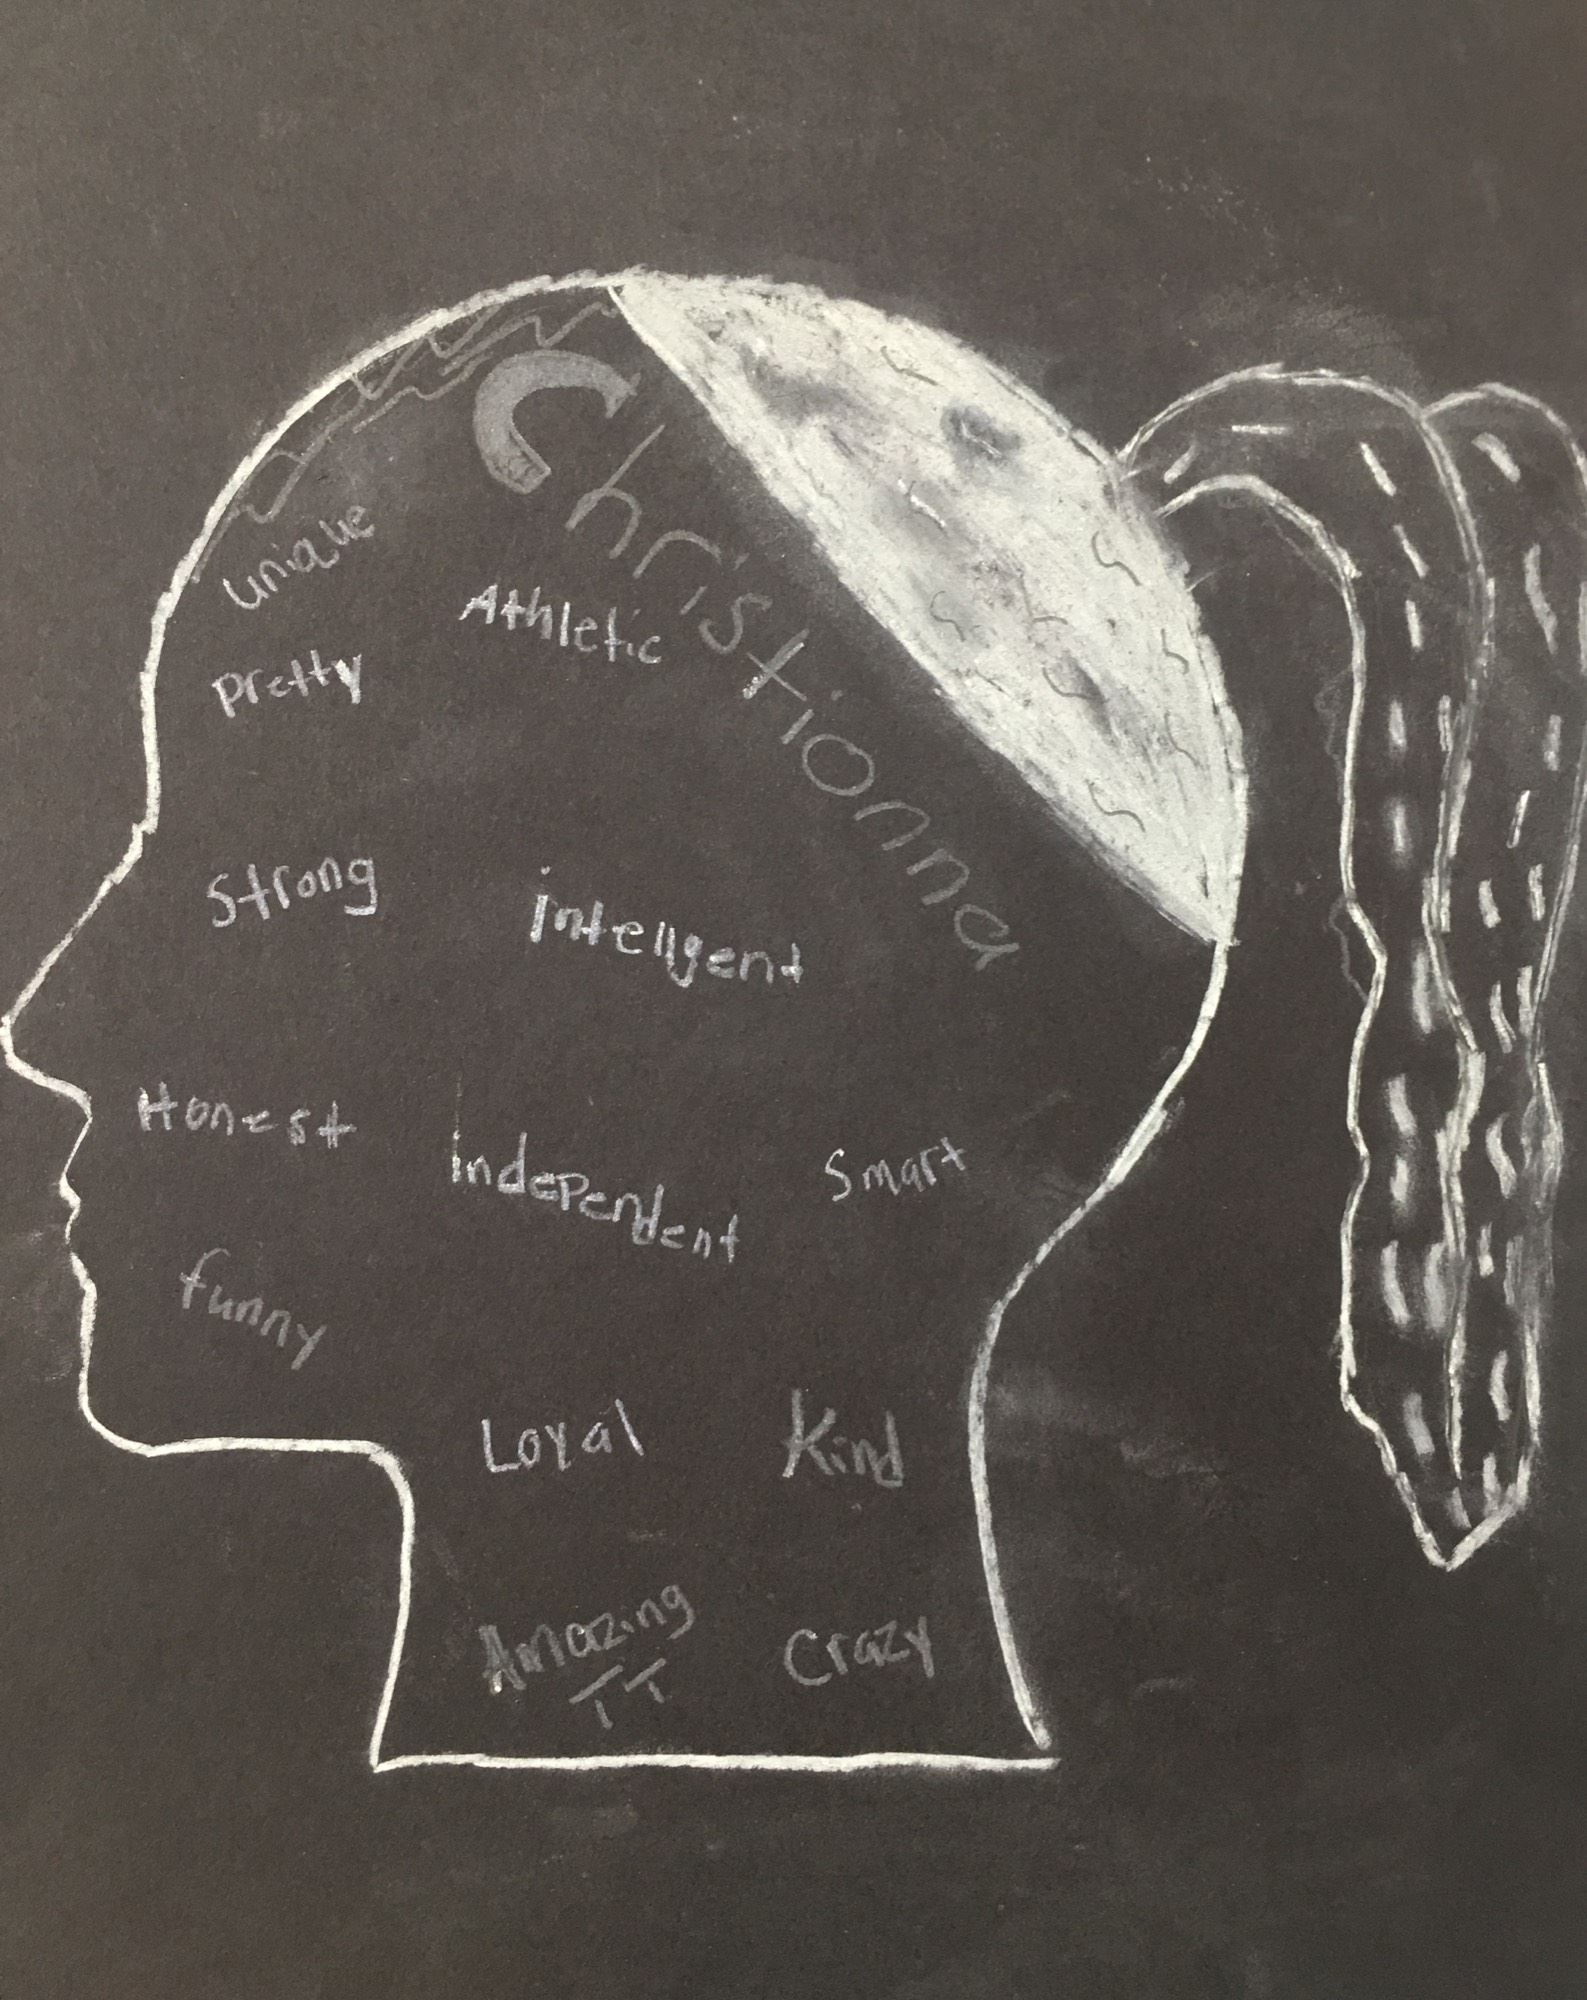 Christionna
unique
Athletic
pretty
Strong
intellgent
Honest
Independent
Smart
funny
Loyal
Kind
Amazing
Crazy